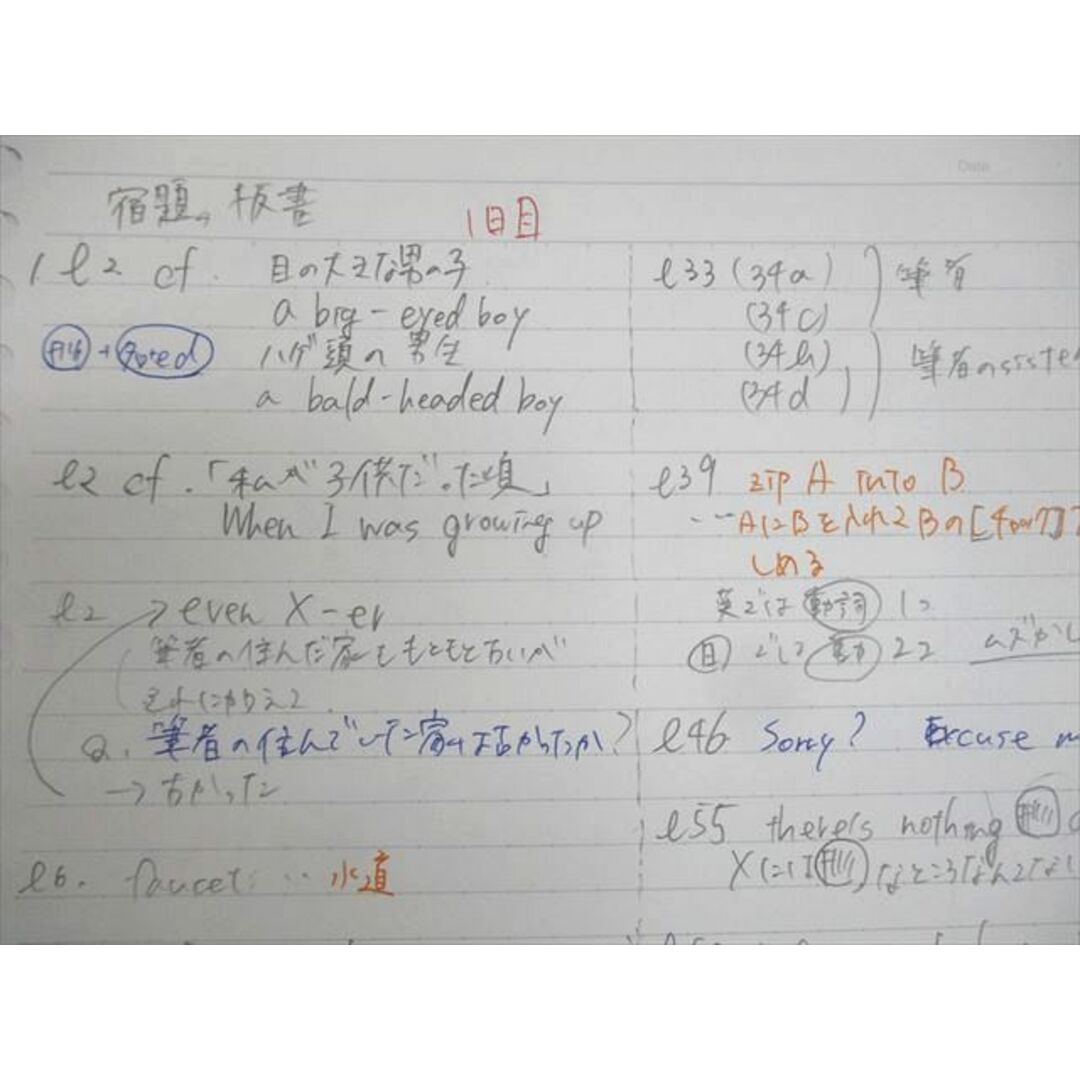 Date
宿題、板書
1日目
1 l2 cf. 目の大きな男の子
a big-eyed boy
名ed
ハゲ頭の男生
a bald-headed boy
l2 cf.「私が子供だった頃」
When I was growing up
l2 → even X-er
筆者の住んだ家ももともと古いが
それにかりえて
Q. 筆者の住んでいた家は古かったか?
→ 古かった
l6. faucet … 水道
l33 (34a) 筆者
(34c)
(34b) 筆者のsister
(34d)
l39 zip A into B
…AにBを入れてBの[チャック]
しめる
英では動詞1つ
日 動 2つ ムズかし
l46 Sorry? Excuse m
l55 there's nothing 形
Xには形なところなんてな